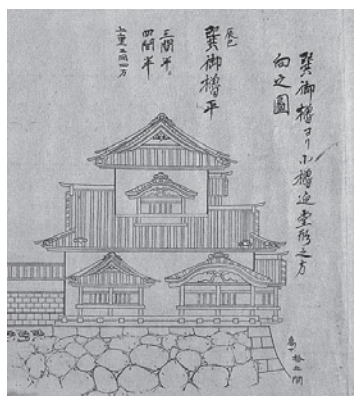 巽御櫓ヨリ小櫓迄堂形之方
向之圖
辰巳
巽御櫓平
三間半
四間半
上重二間四方